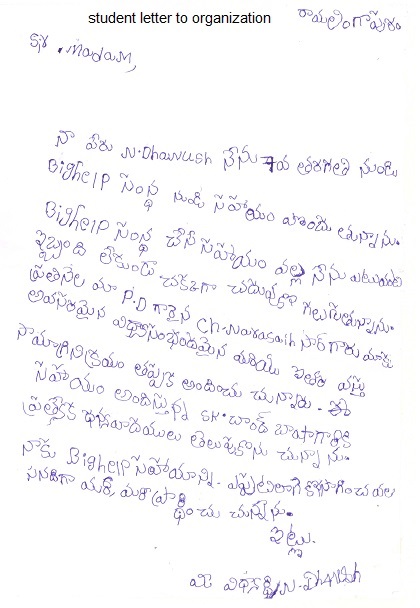 student letter to organization
రామలింగాపురం
Sir, madam,
నా పేరు N.Dhanush నేను 7వ తరగతి నుండి
BigheIP సంస్థ నుండి సహాయం పొందు తున్నాను.
BigheIP సంస్థ చేసే సహాయం వల్ల నేను ఎటువంటి
ఇబ్బంది లేకుండా చక్కగా చదువుకో గలుగుతున్నాను.
ప్రతినెల మా P.D గారైన Ch. సార్ గారు మాకు
అవసరమైన మరియు ఇతర వస్తు
సామాగ్రిని తప్పక అందించు చున్నారు. ఈ
సహాయం అందిస్తున్న SK. చాంద్ బాషా గారికి
ప్రత్యేక ధన్యవాదములు తెలుపుకొను చున్నాను.
నాకు BigheIP సహాయాన్ని ఎప్పటిలాగే కొనసాగించ వల
సినదిగా మరీ మరీ ప్రార్థించు చున్నాను.
ఇట్లు.
మీ విద్యార్థి N. Dhanush